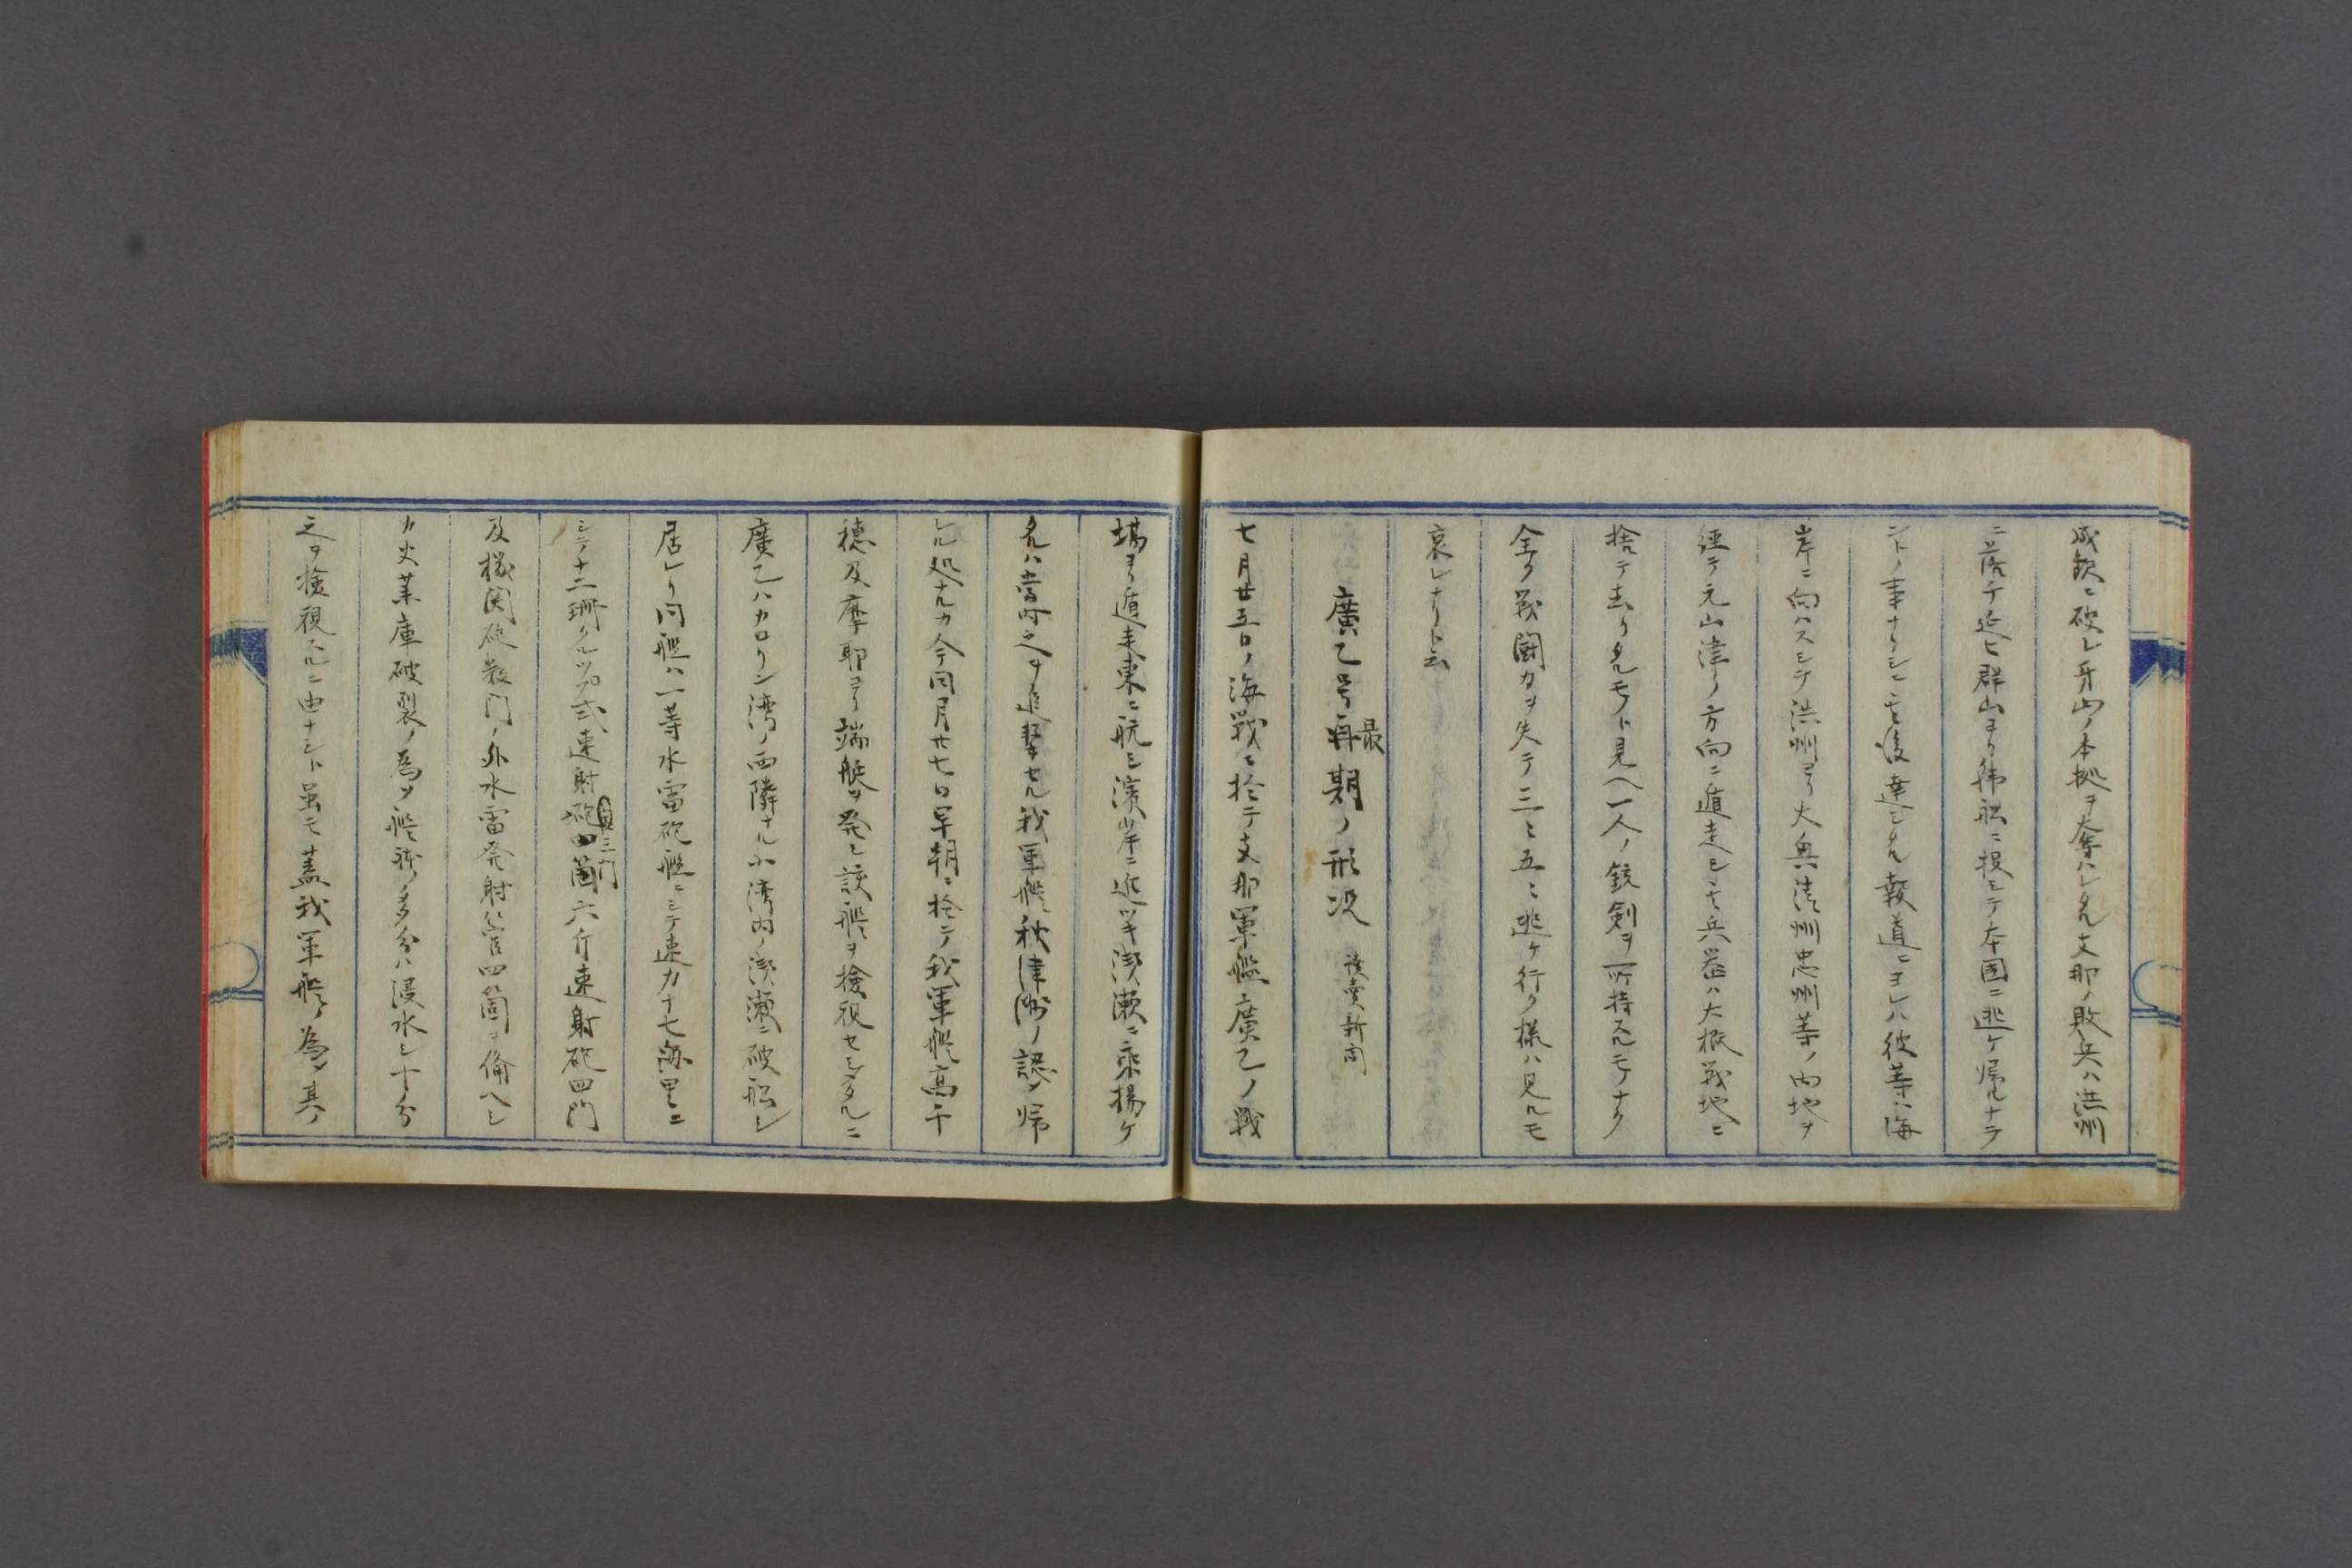 成歓ニ破レ牙山ノ本拠ヲ奪ハレタル支那ノ敗兵ハ洪州
ニ落チ延ヒ群山ヨリ韓船ニ投シテ本国ニ逃ケ帰ルナラ
ントノ事ナリシニ其後達シタル報道ニヨレハ彼等ハ海
岸ニ向ハスシテ洪州ヨリ大興清州忠州等ノ内地ヲ
経テ元山津ノ方向ニ遁走シ其兵器ハ大概戦地ニ
捨テ去リタルモノト見ヘ一人ノ銃剣ヲ所持スルモノナク
全ク戦闘力ヲ失テ三ミ五ミ逃ケ行ク様ハ見ルモ
哀レナリト云
廣乙号最期ノ形况 読賣新聞
七月廿五日ノ海戦ニ於テ支那軍艦廣乙ノ戦
場ヨリ遁走東ニ航シ濱岸ニ近ツキ浅瀬ニ乗揚ケ
タルハ当時之ヲ追撃セル我軍艦秋津洲ノ認メ帰
レル処ナルカ今同月廿七日早朝ニ於テ我軍艦高千
穂及摩耶ヨリ端艇ヲ発シ該艦ヲ検視セシメタルニ
廣乙ハカロリン湾ノ西隣ナル小湾内ノ浅瀬ニ破船シ
居レリ同艦ハ一等水雷砲艦ニシテ速力十七海里ニ
シテ十二珊クルップ式速射砲三門六斤速射砲四門
及機関砲数門ノ外水雷発射管四箇ヲ備ヘシ
カ火薬庫破裂ノ為メ艦跡ノ多分ハ浸水シ十分
之ヲ検視スルニ由ナシト虽モ蓋我軍艦ノ為メ其ノ